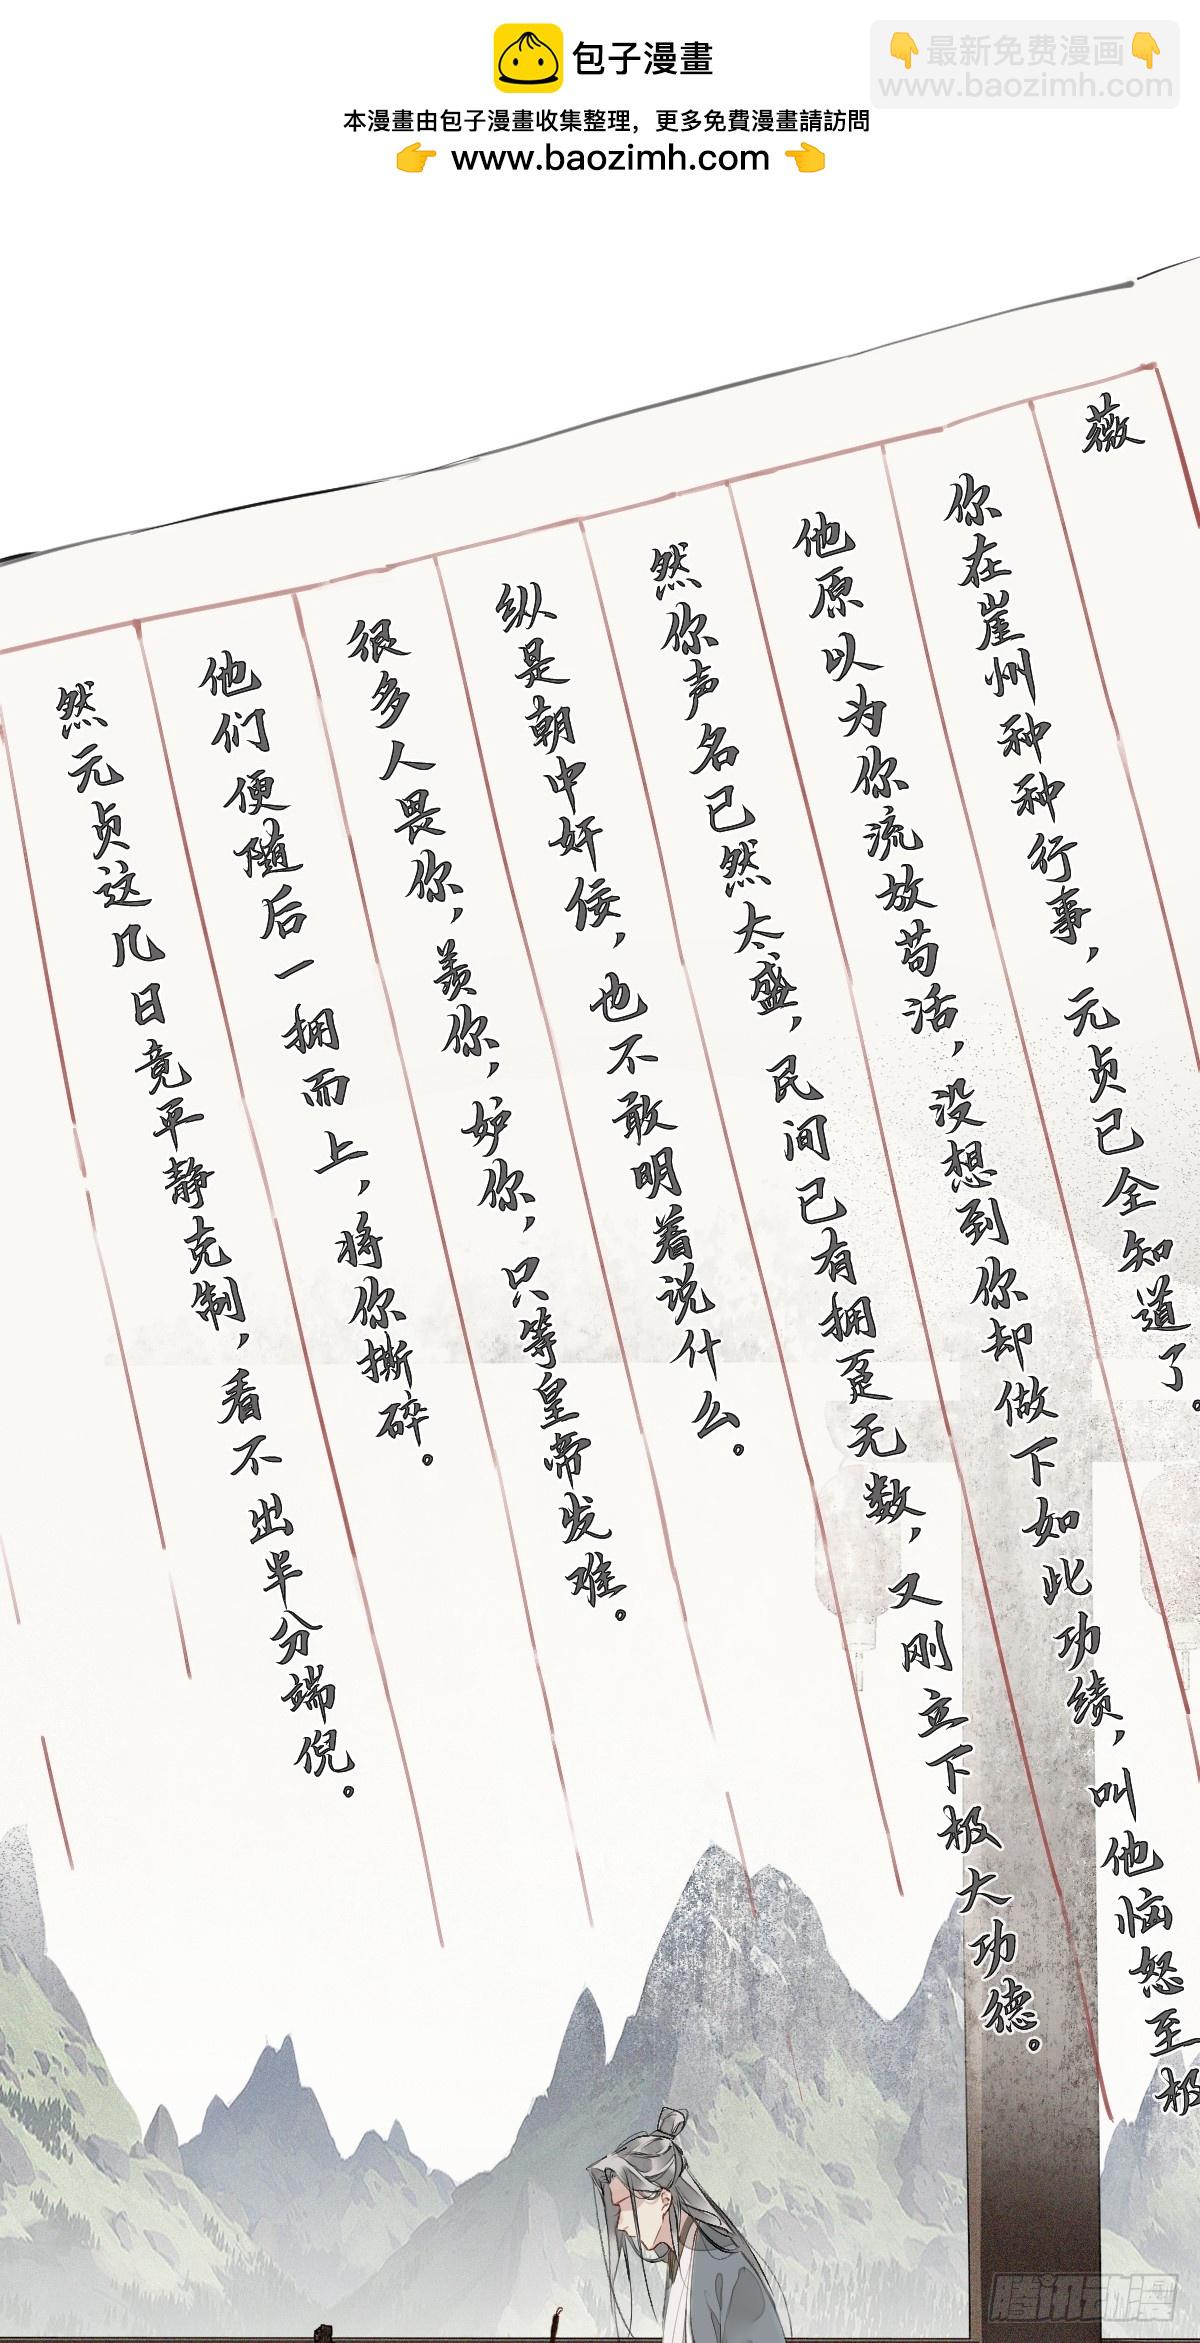 包子漫畫
最新免费漫画
www.baozimh.com
本漫畫由包子漫畫收集整理，更多免費漫畫請訪問
www.baozimh.com
薇
你在崖州种种行事，元贞已全知道了。
他原以为你流放苟活，没想到你却做下如此功绩，叫他恼怒至极
然你声名已然太盛，民间已有拥趸无数，又刚立下极大功德。
纵是朝中奸佞，也不敢明着说什么。
很多人畏你，羡你，妒你，只等皇帝发难。
他们便随后一拥而上，将你撕碎。
然元贞这几日竟平静克制，看不出半分端倪。
腾讯动漫